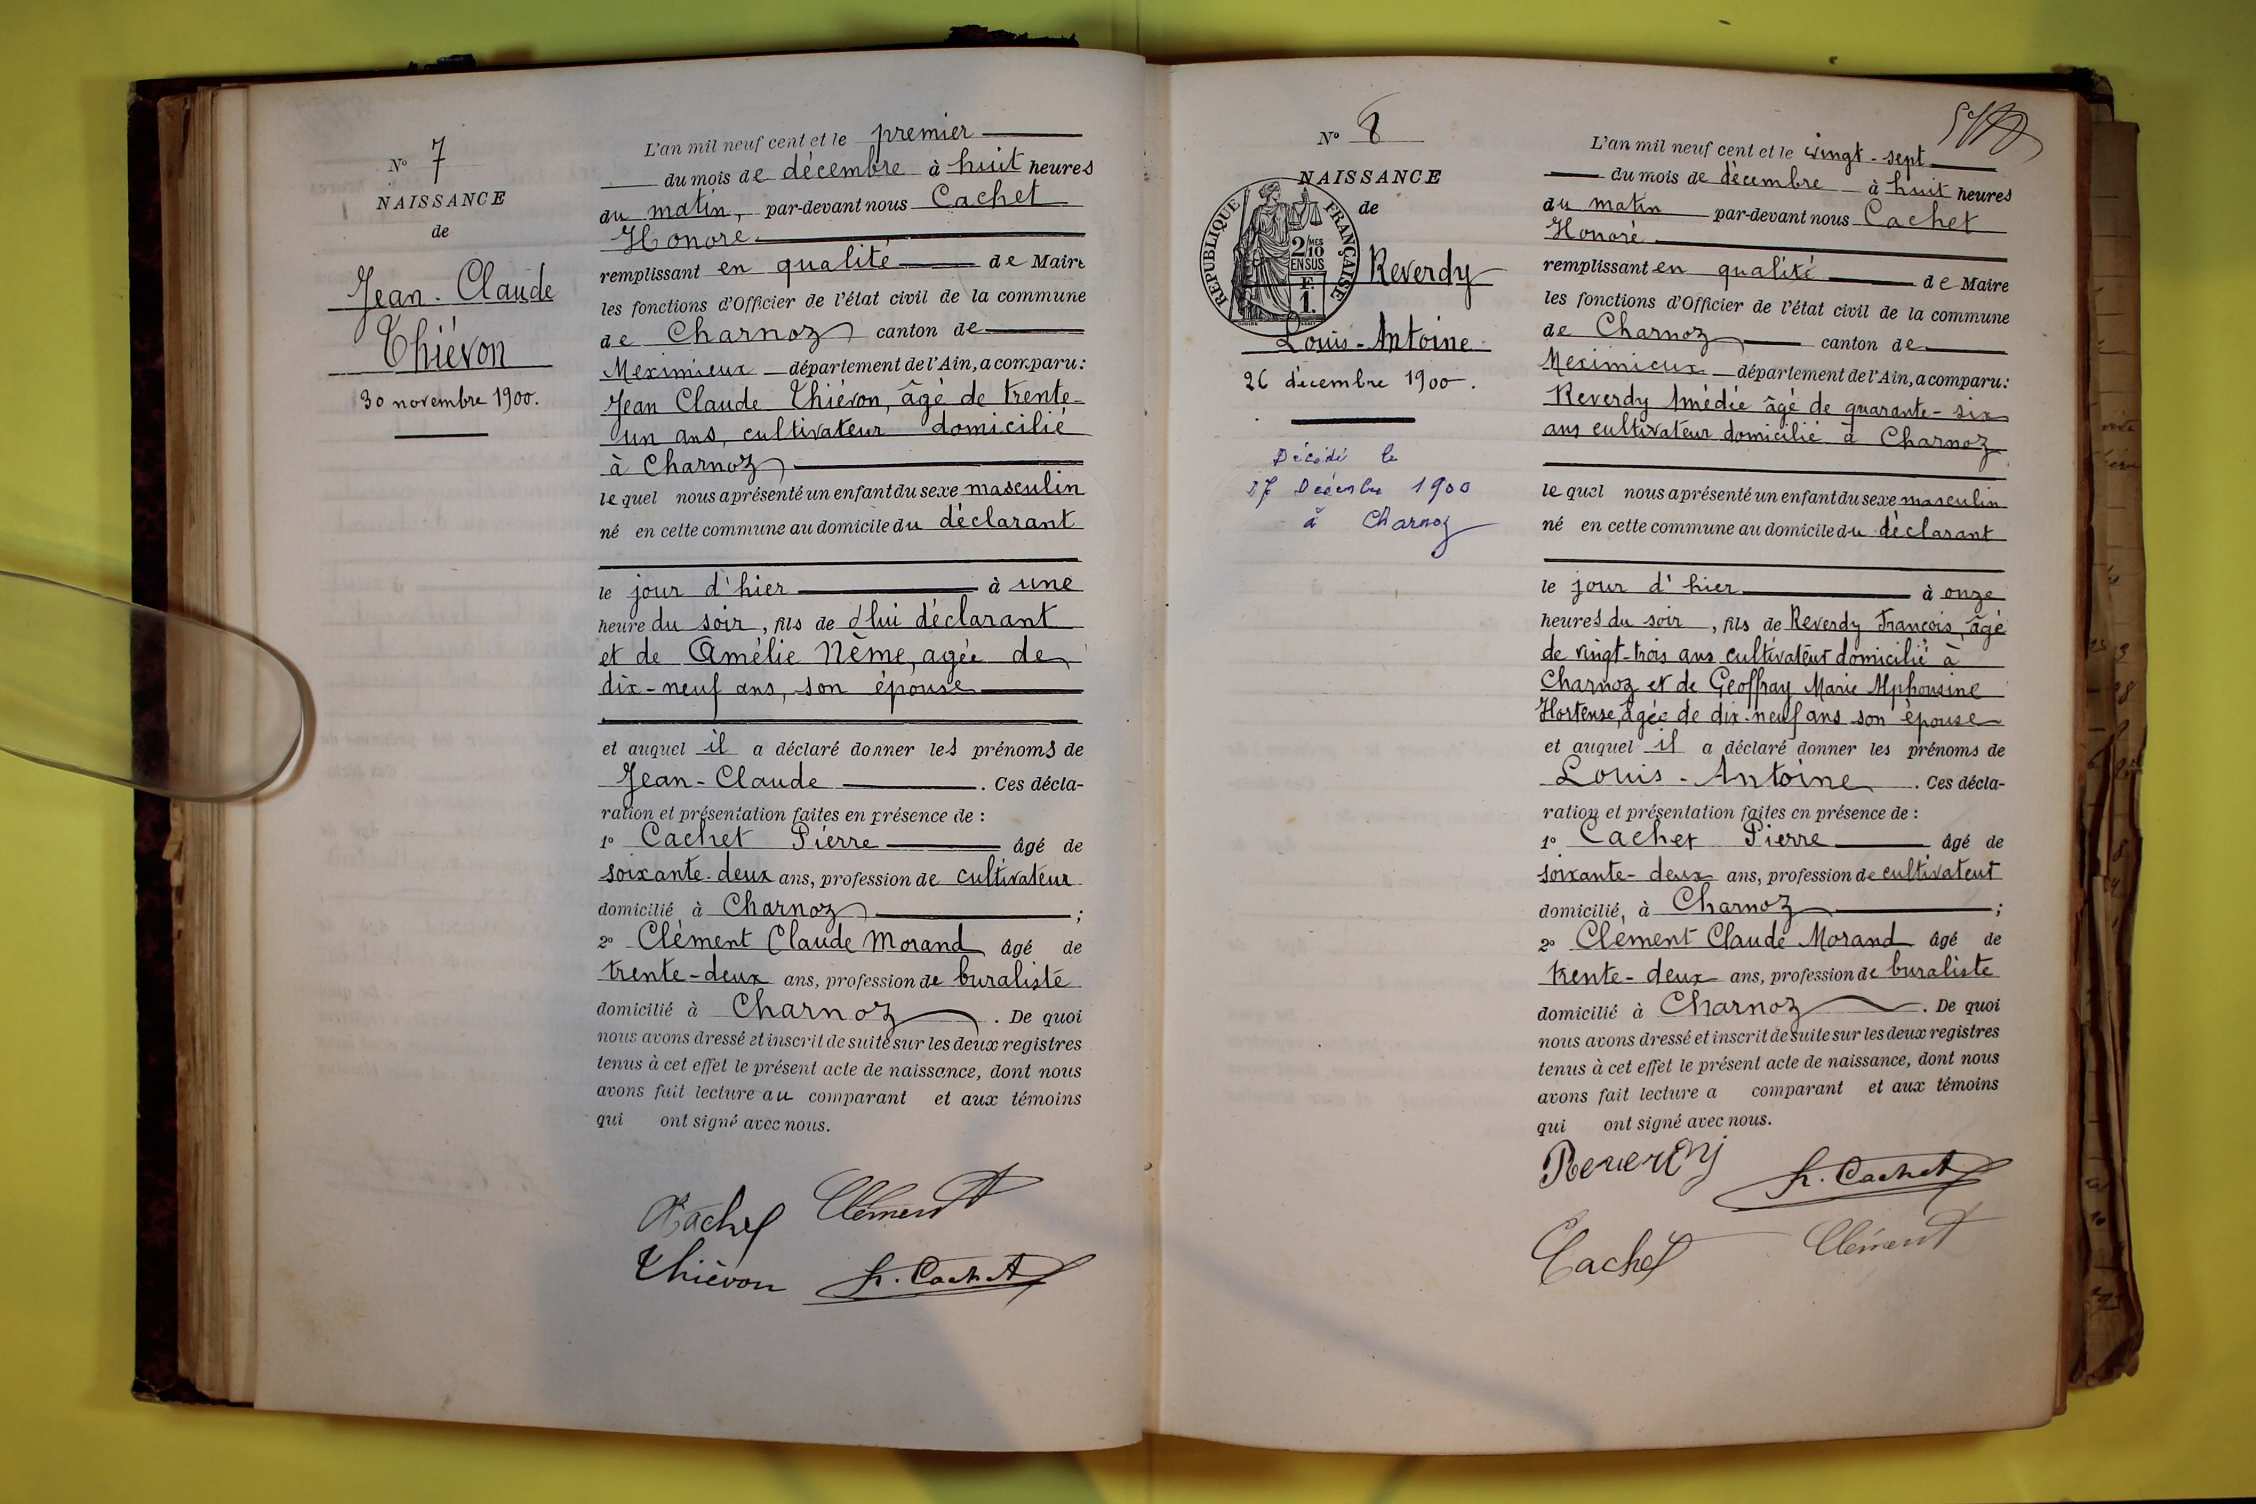 N° 7
NAISSANCE
de
Jean-Claude
Thiévon
30 novembre 1900.
L'an mil neuf cent et le premier
du mois de décembre à huit heures
du matin, par-devant nous Cachet
Honoré
remplissant en qualité de Maire
les fonctions d'Officier de l'état civil de la commune
de Charnoz canton de
Meximieux département de l'Ain, a comparu:
Jean Claude Thiévon, âgé de trente-
un ans, cultivateur domicilié
à Charnoz
lequel nous a présenté un enfant du sexe masculin
né en cette commune au domicile du déclarant
le jour d'hier à une
heure du soir, fils de d'lui déclarant
et de Amélie Nème, agée de
dix-neuf ans, son épouse
et auquel il a déclaré donner les prénoms de
Jean-Claude. Ces décla-
ration et présentation faites en présence de :
1° Cachet Pierre âgé de
soixante-deux ans, profession de cultivateur
domicilié à Charnoz ;
2° Clément Claude Morand âgé de
trente-deux ans, profession de buraliste
domicilié à Charnoz. De quoi
nous avons dressé et inscrit de suite sur les deux registres
tenus à cet effet le présent acte de naissance, dont nous
avons fait lecture au comparant et aux témoins
qui ont signé avec nous.
Cachet Clément
Thiévon h. Cachet
N° 8
NAISSANCE
de
RÉPUBLIQUE FRANÇAISE
2/10 MES
EN SUS
F.
1.
Reverdy
Louis-Antoine
26 décembre 1900.
Décédé le
27 Décembre 1900
à Charnoz
L'an mil neuf cent et le vingt-sept
du mois de décembre à huit heures
du matin par-devant nous Cachet
Honoré
remplissant en qualité de Maire
les fonctions d'Officier de l'état civil de la commune
de Charnoz canton de
Meximieux département de l'Ain, a comparu:
Reverdy Amédée âgé de quarante-six
ans cultivateur domicilié à Charnoz
lequel nous a présenté un enfant du sexe masculin
né en cette commune au domicile du déclarant
le jour d'hier à onze
heures du soir, fils de Reverdy François, âgé
de vingt-trois ans cultivateur domicilié à
Charnoz et de Geoffray Marie Alphonsine
Hortense, âgée de dix-neuf ans son épouse
et auquel il a déclaré donner les prénoms de
Louis-Antoine. Ces décla-
ration et présentation faites en présence de :
1° Cachet Pierre âgé de
soixante-deux ans, profession de cultivateur
domicilié à Charnoz ;
2° Clément Claude Morand âgé de
trente-deux ans, profession de buraliste
domicilié à Charnoz. De quoi
nous avons dressé et inscrit de suite sur les deux registres
tenus à cet effet le présent acte de naissance, dont nous
avons fait lecture a comparant et aux témoins
qui ont signé avec nous.
Reverdy h. Cachet
Cachet Clément